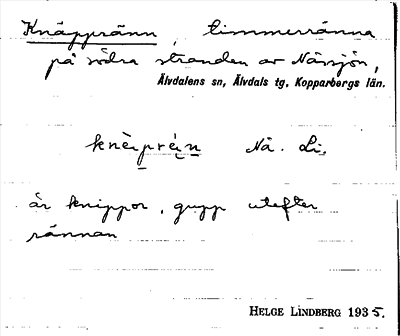 Knäppränn, timmerränna
på södra stranden av Nässjön,
Älvdalens sn, Älvdals tg, Kopparbergs län.
Nä. Li.
är knippor, grupp utefter
rännan
HELGE LINDBERG 1935.